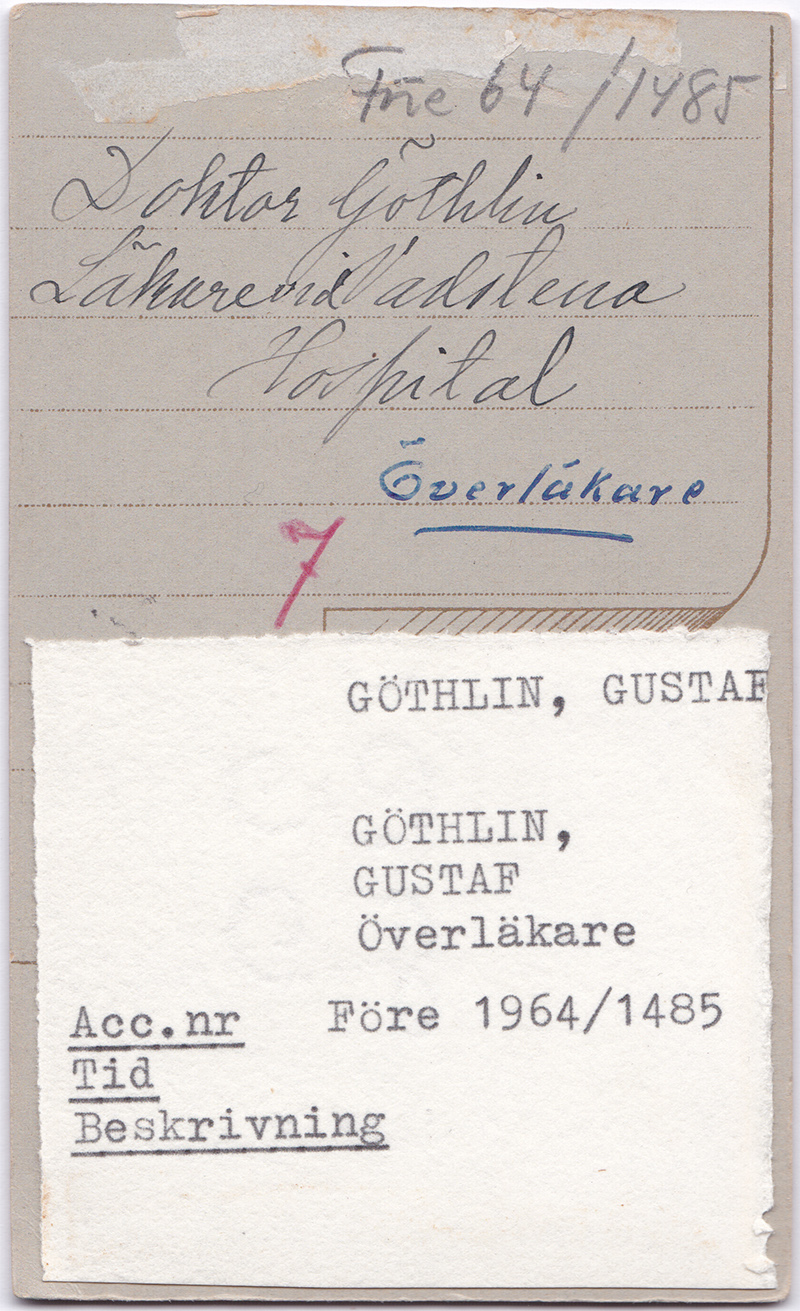 Före 64/1485
Doktor Göthlin
Läkare vid Vadstena
Hospital
Överläkare
7
GÖTHLIN, GUSTAF
GÖTHLIN,
GUSTAF
Överläkare
Acc.nr Före 1964/1485
Tid
Beskrivning